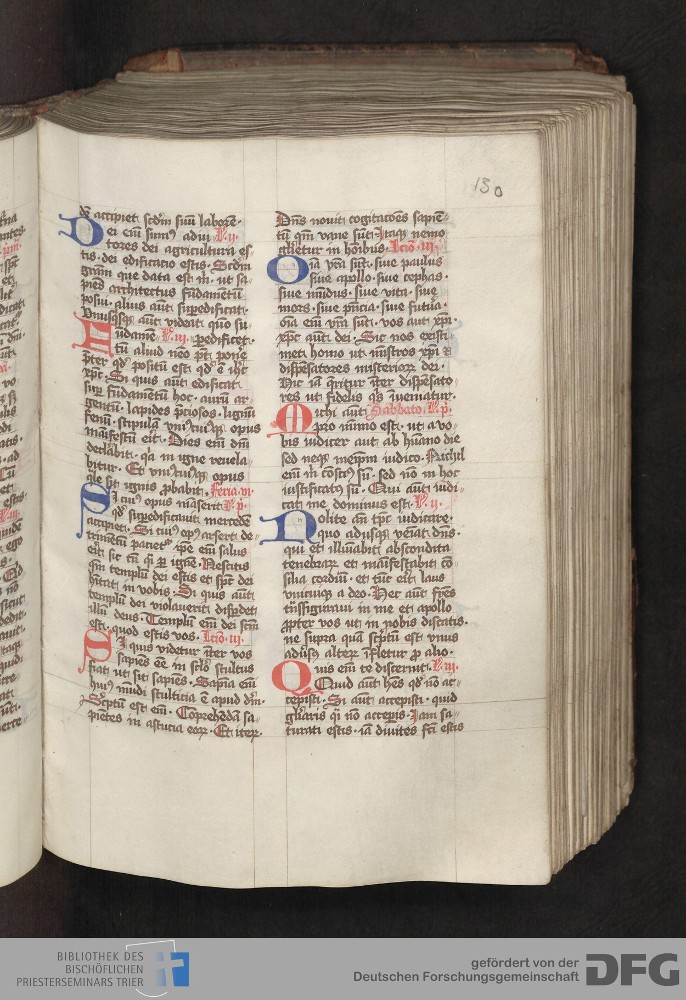 130
dē accipiet scđm suū laborē·
Dei em̄ sumꝰ adiu L·ij·
tores dei agricultura es
tis· dei edificatio estis· Scđm
grām que data est m̄· ut sa
piēs architectus fūdamētū
posui· alius aūt sup̄edificat·
Vnusqsqꝫ aūt videat quō su
Fundamē L·iij· p̄edificet·
tū aliud nēo pt̄ pone
p̄ter qđ positū est· qđ ē ihc
xpc· Si quis aūt edificat
sup̄ fūdamētū hoc· aurū ar
gentū· lapides p̄ciosos· lignū
fenū· stipulā vniꝰcuiꝰqꝫ opus
māifestū eīt· Dies em̄ dn̄i
declābit· qa in igne reuela
bitur· Et vniꝰcuiꝰqꝫ opus
qle sit ignis ꝓbabit· Feria vi·
Si cuiꝰ opus māserit L·p̄·
qđ sup̄edificauit mercedē
accipiet· Si cuiꝰ opꝰ arserit de
trimētū paciet᷑ ipē em̄ saluꝰ
eīt· sic tn̄ qi ꝑ ignē· Nescitis
qm̄ templū dei estis et spc̄ dei
hītat in vobis· Si quis aūt
templū dei violauerit dispdet
illū deus· Templū em̄ dei scm̄
est· quod estis vos· Lctio· iij·
Si quis videtur īter vos
sapiēs ēē in sclo stultus
fiat ut sit sapiēs· Sapīa em̄
huiꝰ mūdi stulticia ē apud dm̄·
Scptū est em̄· Cōprehēdā sa
piētes in astucia eoꝝ· Et iteꝝ
Dn̄s nouit cogitacōes sapiē
tū qm̄ vane sūt· Itaqꝫ nemo
gl̄ietur in hōibus· Lctio· iii·
Oīa vr̄a sūt· siue paulus
siue apollo· siue cephas·
siue mūdus· siue vita· siue
mors· siue p̄ncia· siue futura·
oīa em̄ vr̄a sūt· vos aut xpi·
xpc aūt dei· Sic nos existi
met homo ut mīstros xpi ⁊
dispēsatores misterioꝝ dei·
Hic iā q̄ritur īter dispēsato
res ut fidelis qs īueniatur·
Michi aūt Sabbato L·p̄·
pro mīmo est· ut a vo
bis iudicer aut ab hūano die
sed neqꝫ meip̄m iudico· Nichil
em̄ m̄ cōsciꝰ sū· sed nō in hoc
iustificatꝰ sū· Qui aūt iudi
cat me dominus est· L·ij·
Nolite an̄ tp̄c iudicare·
quo adusqꝫ veīat dn̄s·
qui et illūabit abscondita
tenebraꝝ et māifestabit cō
silia cordiū· et tūc eīt laus
vnicuiqꝫ a deo· Hec aūt fr̄es
trāsfiguraui in me et apollo
ꝓpter vos ut in nobis discatis·
ne supra quā scptū est vnus
adūsꝰ alteꝝ īfletur ꝓ alio·
Quis em̄ te discernit· L·iij·
Quid aūt hēs qđ nō ac
cepisti· Si aūt accepisti· quid
gl̄iaris qi nō acceꝑis· Iam sa
turati estis· iā diuites fc̄i estis
BIBLIOTHEK DES
BISCHÖFLICHEN
PRIESTERSEMINARS TRIER
gefördert von der
Deutschen Forschungsgemeinschaft
DFG